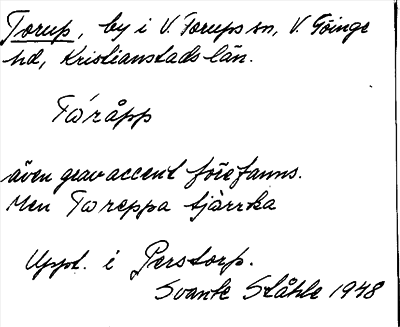 Torup, by i V. Torups sn, V. Göinge
hd, Kristianstads län.
Tó̵råpp
även grav accent förefanns.
Men Toreppa tjärrka
Uppt. i Perstorp.
Svante Ståhle 1948